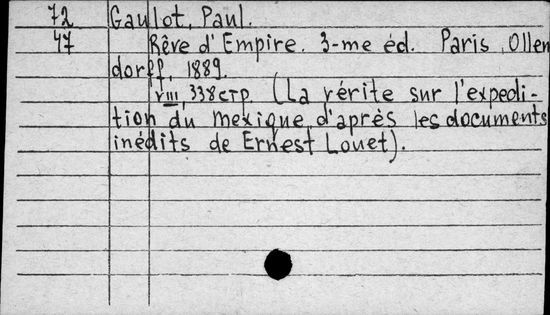 72 Gaulot, Paul.
47 Rêve d'Empire. 3-me éd. Paris, Ollen
dorff, 1889.
VIII, 338 стр. (La vérite sur l'expedi-
tion du mexique d'après les documents
inédits de Ernest Louet).